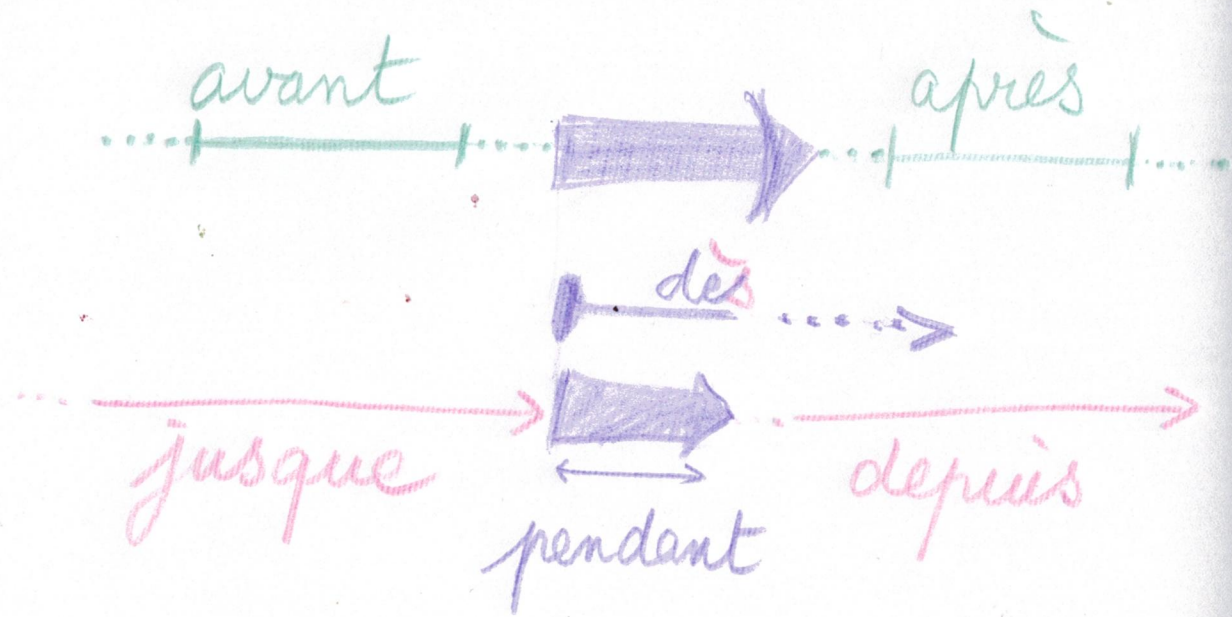 avant après
dès
jusque depuis
pendant